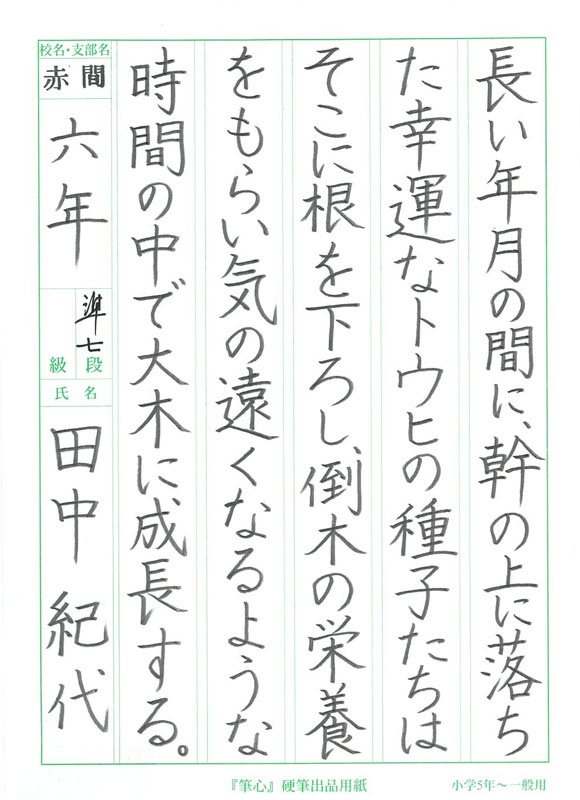 長い年月の間に、幹の上に落ち
た幸運なトウヒの種子たちは
そこに根を下ろし、倒木の栄養
をもらい気の遠くなるような
時間の中で大木に、成長する。
校名・支部名
赤間
六年
準七
級 段
氏名
田中 紀代
『筆心』硬筆出品用紙
小学5年〜一般用